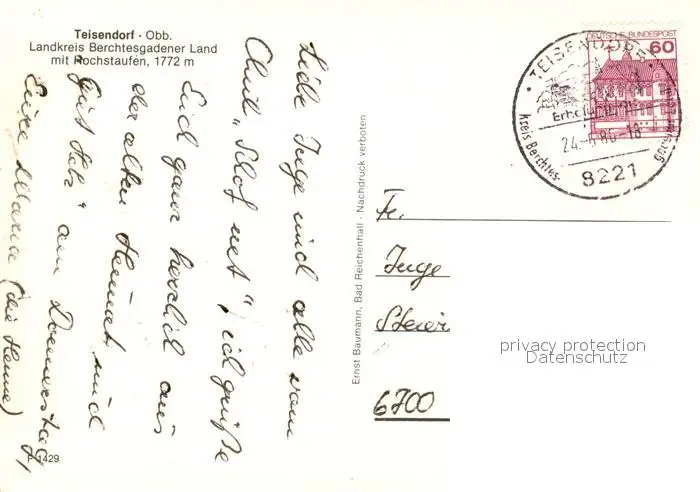 Teisendorf · Obb.
Landkreis Berchtesgadener Land
mit Hochstaufen, 1772 m
Liebe Inge und alle vom
Club „Schof net“, ich grüße
Euch ganz herzlich aus
der alten Heimat und
"Gut Holz" am Donnerstag,
Eure Marne (die Henne)
P 1429
Ernst Baumann, Bad Reichenhall · Nachdruck verboten
DEUTSCHE BUNDESPOST
60
TEISENDORF
Erholungsort
24.-6.86-18
Kreis Berchtes
8221
Fr.
Inge
Steier
6700
privacy protection
Datenschutz